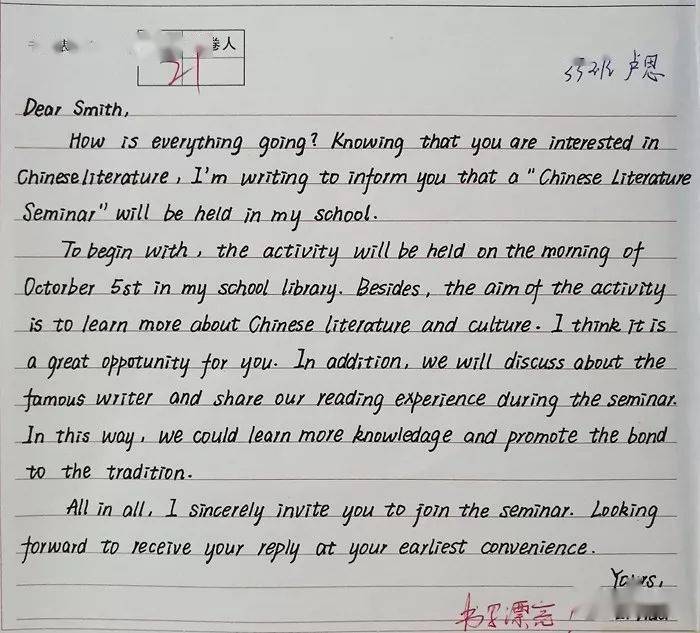 卷人
21
卢恩
Dear Smith,
How is everything going? Knowing that you are interested in
Chinese literature, I'm writing to inform you that a "Chinese Literature
Seminar" will be held in my school.
To begin with, the activity will be held on the morning of
Octorber 5st in my school library. Besides, the aim of the activity
is to learn more about Chinese literature and culture. I think it is
a great oppotunity for you. In addition, we will discuss about the
famous writer and share our reading experience during the seminar.
In this way, we could learn more knowledage and promote the bond
to the tradition.
All in all, I sincerely invite you to join the seminar. Looking
forward to receive your reply at your earliest convenience.
Yours,
书写漂亮